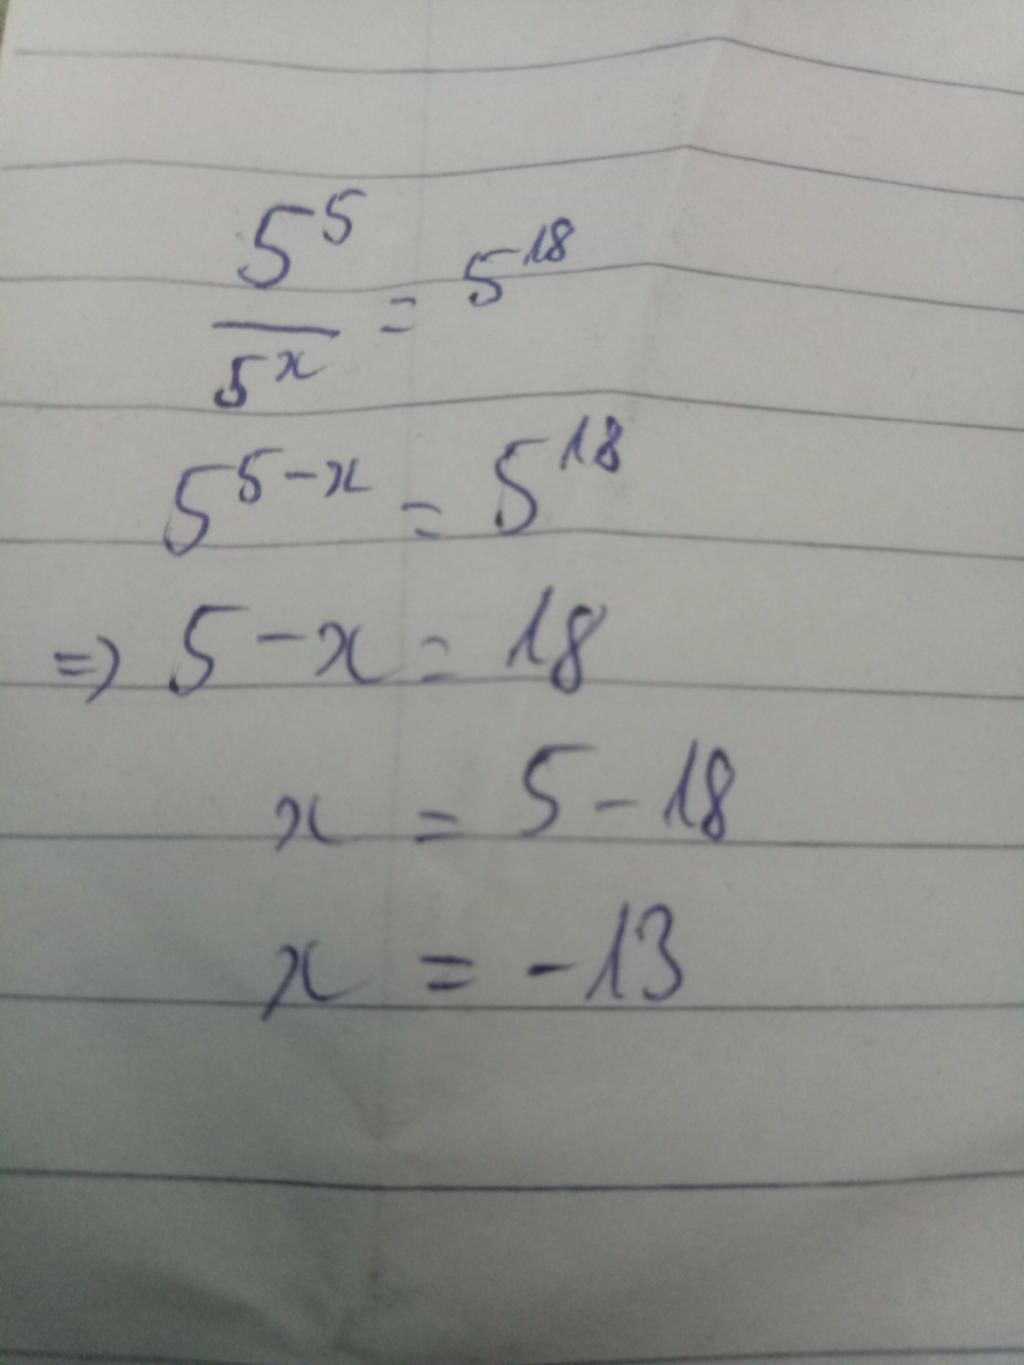 5^5 / 5^x = 5^18
5^5-x = 5^18
=> 5 - x = 18
x = 5 - 18
x = -13